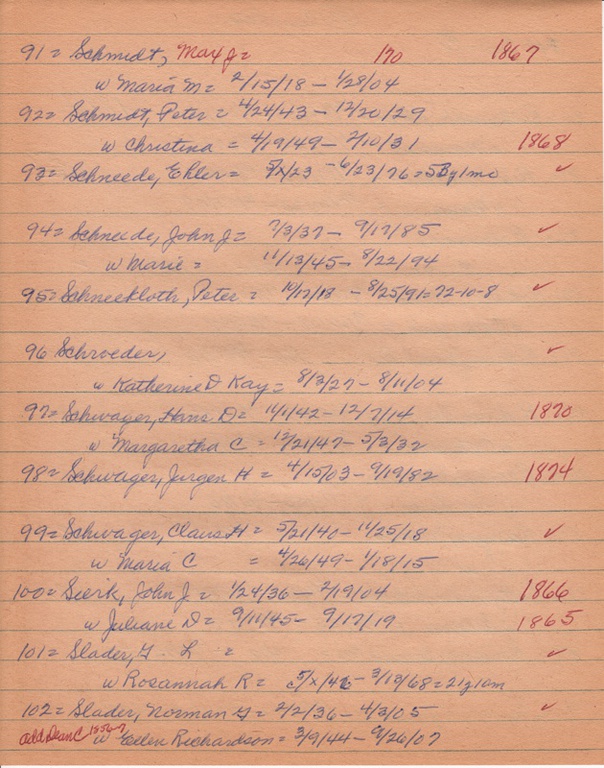 91= Schmidt, Max J= 170 1867
w Maria M= 2/15/18 - 1/28/04
92= Schmidt, Peter = 4/24/43 - 12/20/29
w Christina = 4/19/49 - 2/10/31 1868
93= Schneede, Ehler= 5/x/23 - 6/23/76 = 53y1mo ✓
94= Schneede, John J= 7/3/37 - 9/17/85 ✓
w Marie = 11/13/45 - 8/22/94
95= Schneekloth, Peter = 10/17/18 - 8/25/91=72-10-8 ✓
96 Schroeder, ✓
w Katherine D Kay = 8/3/27 - 8/11/04
97= Schwager, Hans D= 11/1/42 - 12/7/14 1870
w Margaretha C = 12/21/47 - 5/3/32
98= Schwager, Jurgen H = 4/15/03 - 9/19/82 1874
99= Schwager, Claus H = 5/21/40 - 11/25/18 ✓
w Maria C = 4/26/49 - 1/18/15
100= Sierk, John J = 1/24/36 - 2/19/04 1866
w Juliane D = 9/11/45 - 9/17/19 1865
101= Slader, L = ✓
w Rosannah R = 5/x/46 - 3/13/68 = 21y10m
102= Slader, Norman G = 2/2/36 - 4/3/05 ✓
add Dean C 1856-7 w Ellen Richardson = 3/9/44 - 9/26/07